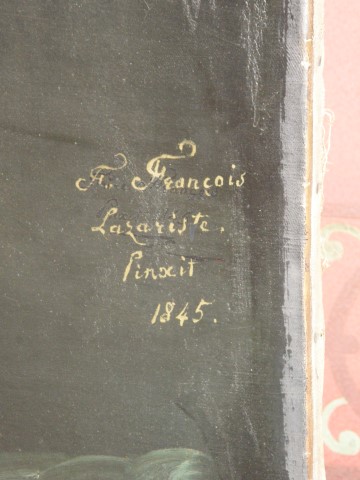 Fr. François
Lazariste.
Pinxit
1845.